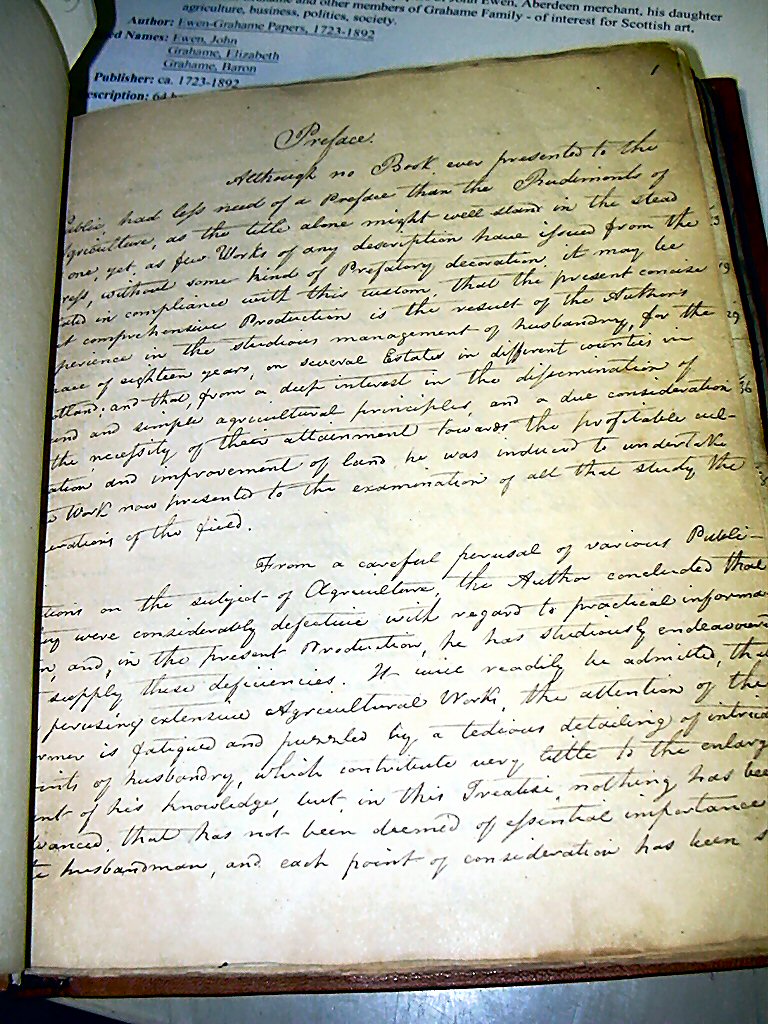 and other members of Grahame Family - of interest for Scottish art,
Ewen, Aberdeen merchant, his daughter
agriculture, business, politics, society.
Author: Ewen-Grahame Papers, 1723-1892
ed Names: Ewen, John
Grahame, Elizabeth
Grahame, Baron
Publisher: ca. 1723-1892
escription: 64 b
1
Preface.
Although no Book ever presented to the
Public, had less need of a Preface than the Rudiments of
Agriculture, as the title alone might well stand in the stead
one, yet, as few Works of any description have issued from the
ress, without some kind of Prefatory decoration, it may be
ated in compliance with this custom, that the present concise
t comprehensive Production is the result of the Author's
perience in the studious management of husbandry, for the
pace of eighteen years, on several Estates in different counties in
otland; and that, from a deep interest in the dissemination of
and and simple agricultural principles, and a due consideration
the necessity of their attainment towards the profitable cul-
ation and improvement of land, he was induced to undertake
e Work now presented to the examination of all that study the
erations of the field.
From a careful perusal of various Publi-
tions on the subject of Agriculture, the Author concluded that
ey were considerably defective with regard to practical informa-
n, and, in the present Production, he has studiously endeavoured
supply these deficiencies. It will readily be admitted, that
perusing extensive Agricultural Works, the attention of the
rmer is fatigued and puzzled by a tedious detailing of intricate
oints of husbandry, which contribute very little to the enlarg
nt of his knowledge, but, in this Treatise, nothing has bee
vanced, that has not been deemed of essential importance
e husbandman, and each point of consideration has been s
29
36